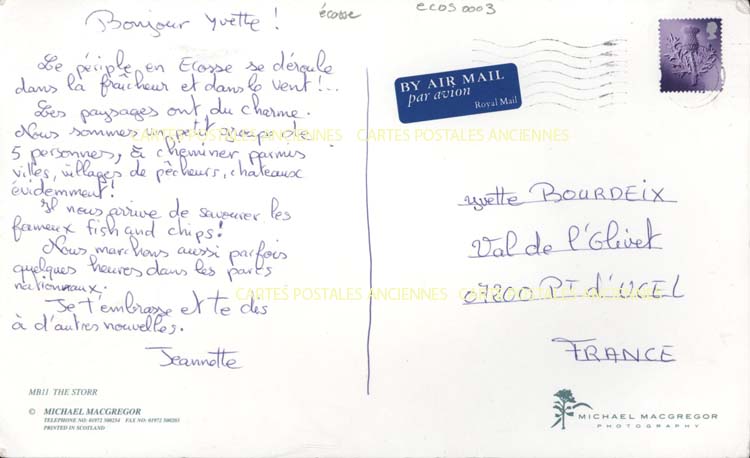 écosse
ecos0003
Bonjour Yvette !
Le périple en Ecosse se déroule
dans la fraîcheur et dans le vent !..
Les paysages ont du charme.
Nous sommes un petit groupe de
5 personnes, à cheminer parmis
villes, villages de pêcheurs, chateaux
évidemment !
Il nous arrive de savourer les
fameux fish and chips !
Nous marchons aussi parfois
quelques heures dans les parcs
nationnaux.
Je t'embrasse et te dis
à d'autres nouvelles.
Jeannette
MB11 THE STORR
© MICHAEL MACGREGOR
TELEPHONE NO: 01972 500254 FAX NO: 01972 500203
PRINTED IN SCOTLAND
BY AIR MAIL
par avion
Royal Mail
Yvette BOURDEIX
Val de l'Olivet
07200 PT d'UCEL
FRANCE
MICHAEL MACGREGOR
PHOTOGRAPHY
CARTES POSTALES ANCIENNES CARTES POSTALES ANCIENNES
CARTES POSTALES ANCIENNES CARTES POSTALES ANCIENNES